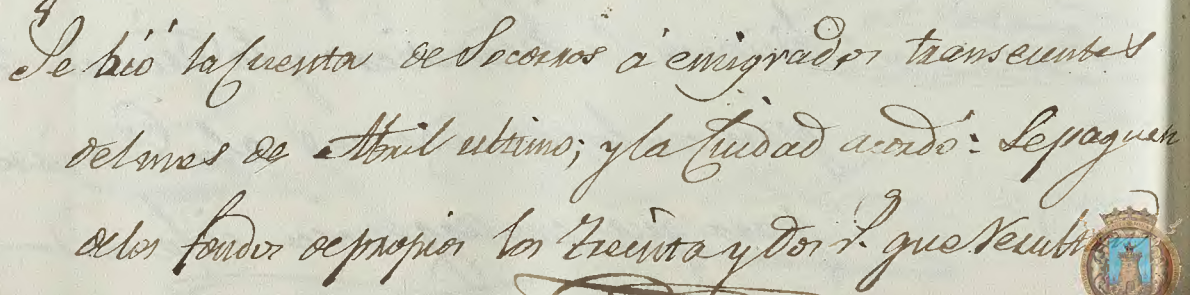 Se bió la Cuenta de Socorros á emigrados transeuntes
del mes de Abril ultimo; y la Ciudad acordó: Se paguen
de los fondos de propios los treinta y dos r.ˢ que